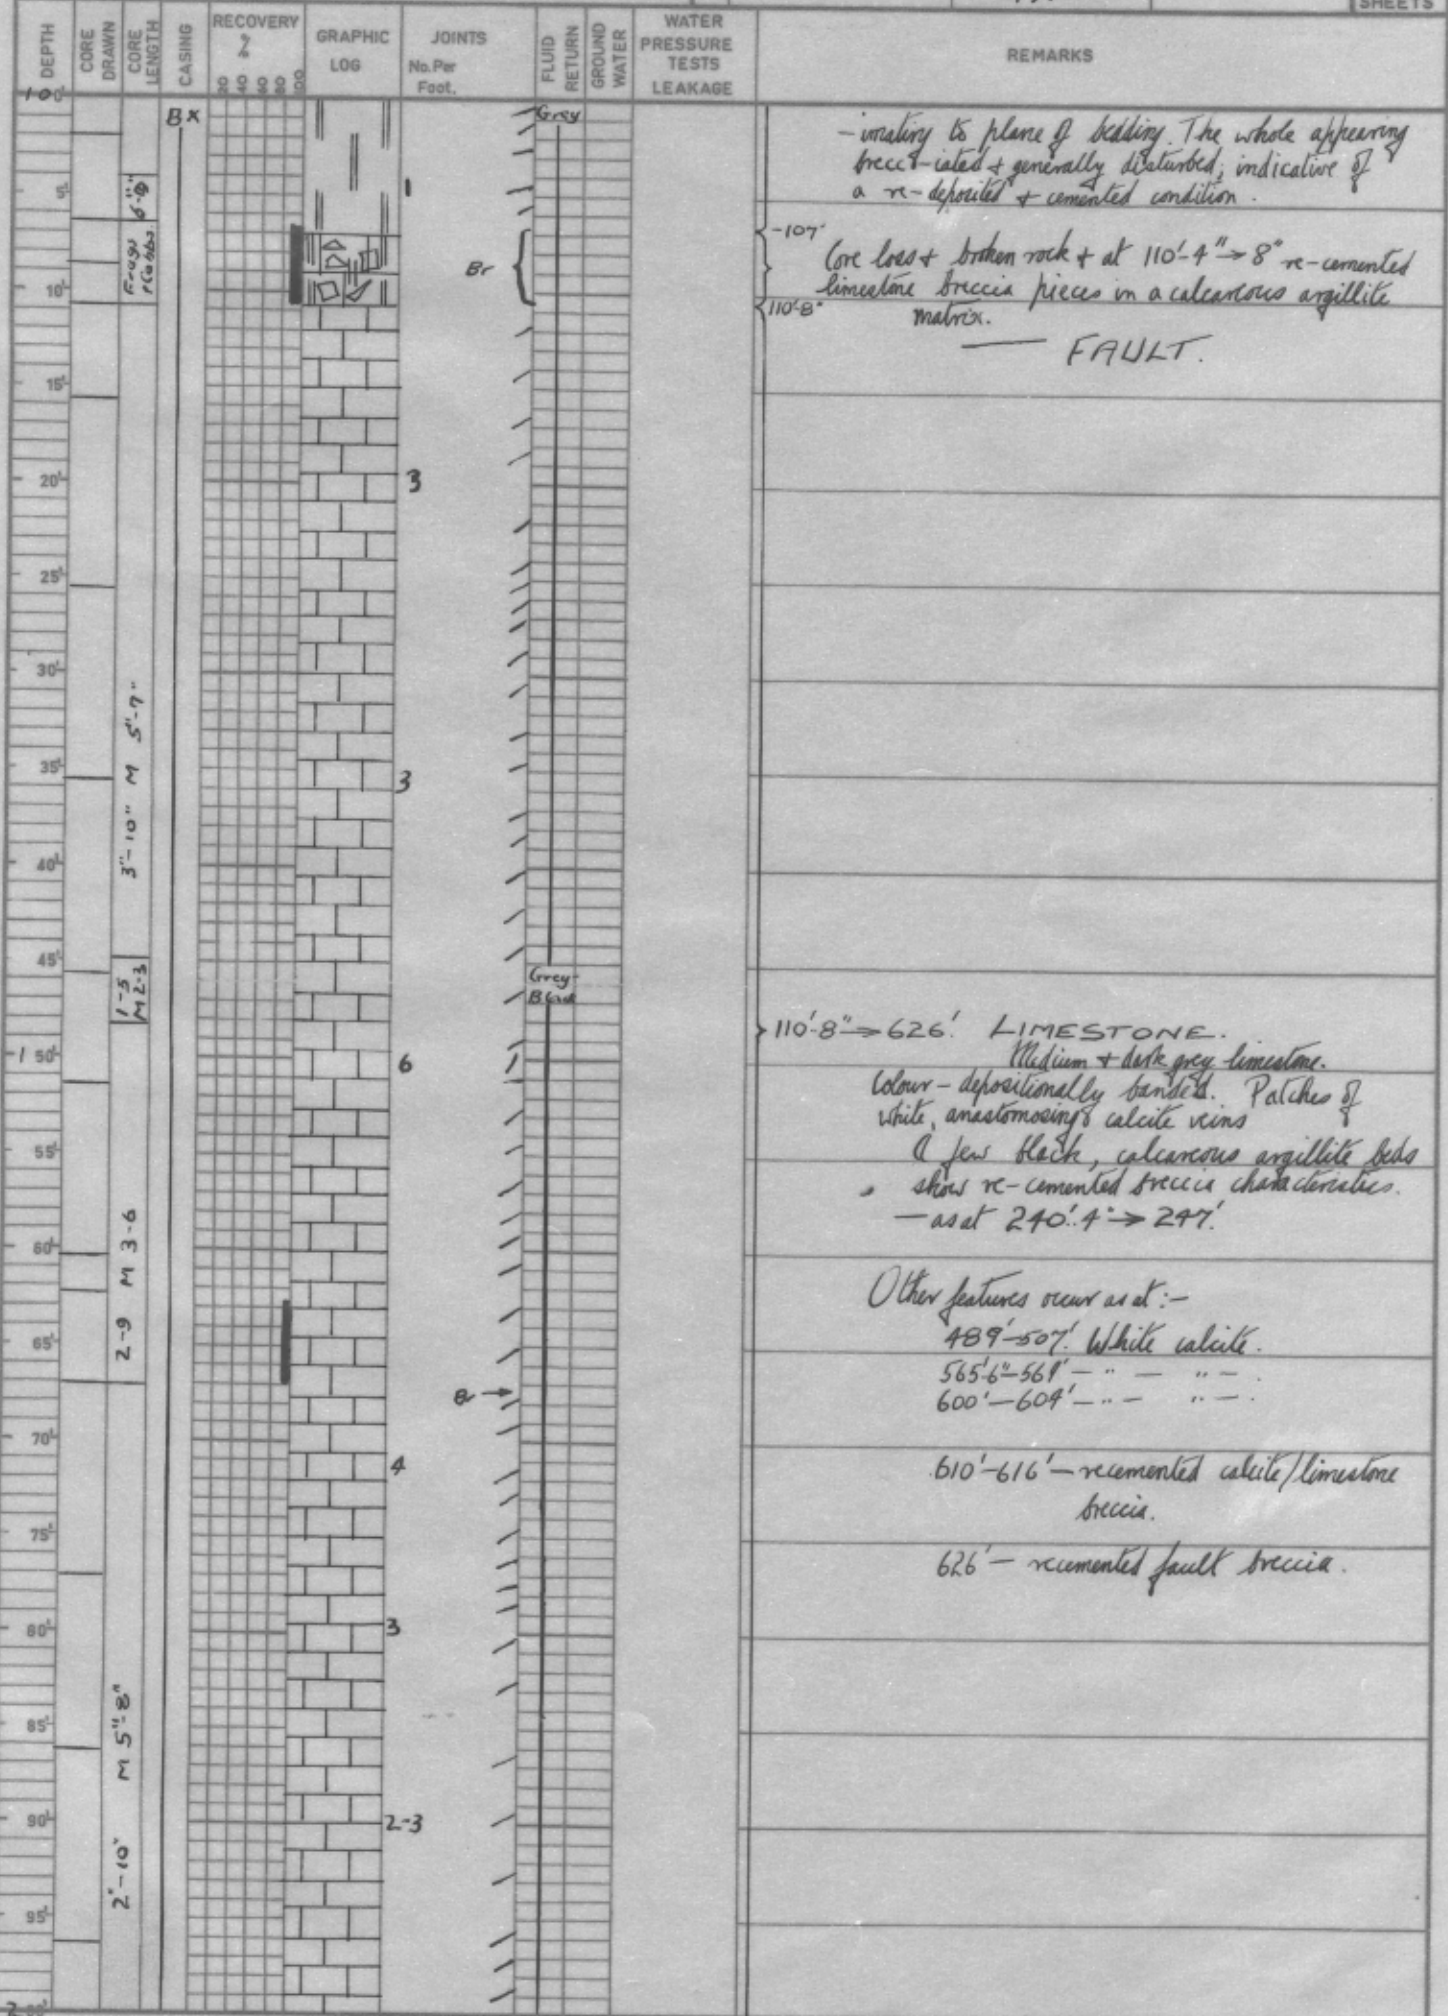 SHEETS
DEPTH
CORE DRAWN
CORE LENGTH
CASING
RECOVERY %
20 40 60 80 100
GRAPHIC LOG
JOINTS
No. Per Foot.
FLUID RETURN
GROUND WATER
WATER PRESSURE TESTS LEAKAGE
REMARKS
100'
5'
10'
15'
20'
25'
30'
35'
40'
45'
150'
55'
60'
65'
70'
75'
80'
85'
90'
95'
200'
Frags
3"-10" M 5"-7"
1-5
M 2-3
2-9 M 3-6
2"-10" M 5"-8"
BX
1
Br
3
3
6
4
3
2-3
Grey
Grey-
Black
-imating to plane of bedding. The whole appearing
brecc-iated & generally disturbed; indicative of
a re-deposited & cemented condition.
-107'
Core loss & broken rock & at 110'-4" → 8" re-cemented
limestone breccia pieces in a calcareous argillite
110'-8"
matrix.
— FAULT.
110'-8" → 626'. LIMESTONE.
Medium & dark grey limestone.
Colour - depositionally banded. Patches of
white, anastomosing calcite veins
A few black, calcareous argillite beds
show re-cemented breccia characteristics.
— as at 240'.4" → 247'.
Other features occur as at:-
489'-507'. White calcite.
565'6"-569' - " - " - .
600'-604' - " - " - .
610'-616' - recemented calcite/limestone
breccia.
626' - recemented fault breccia.